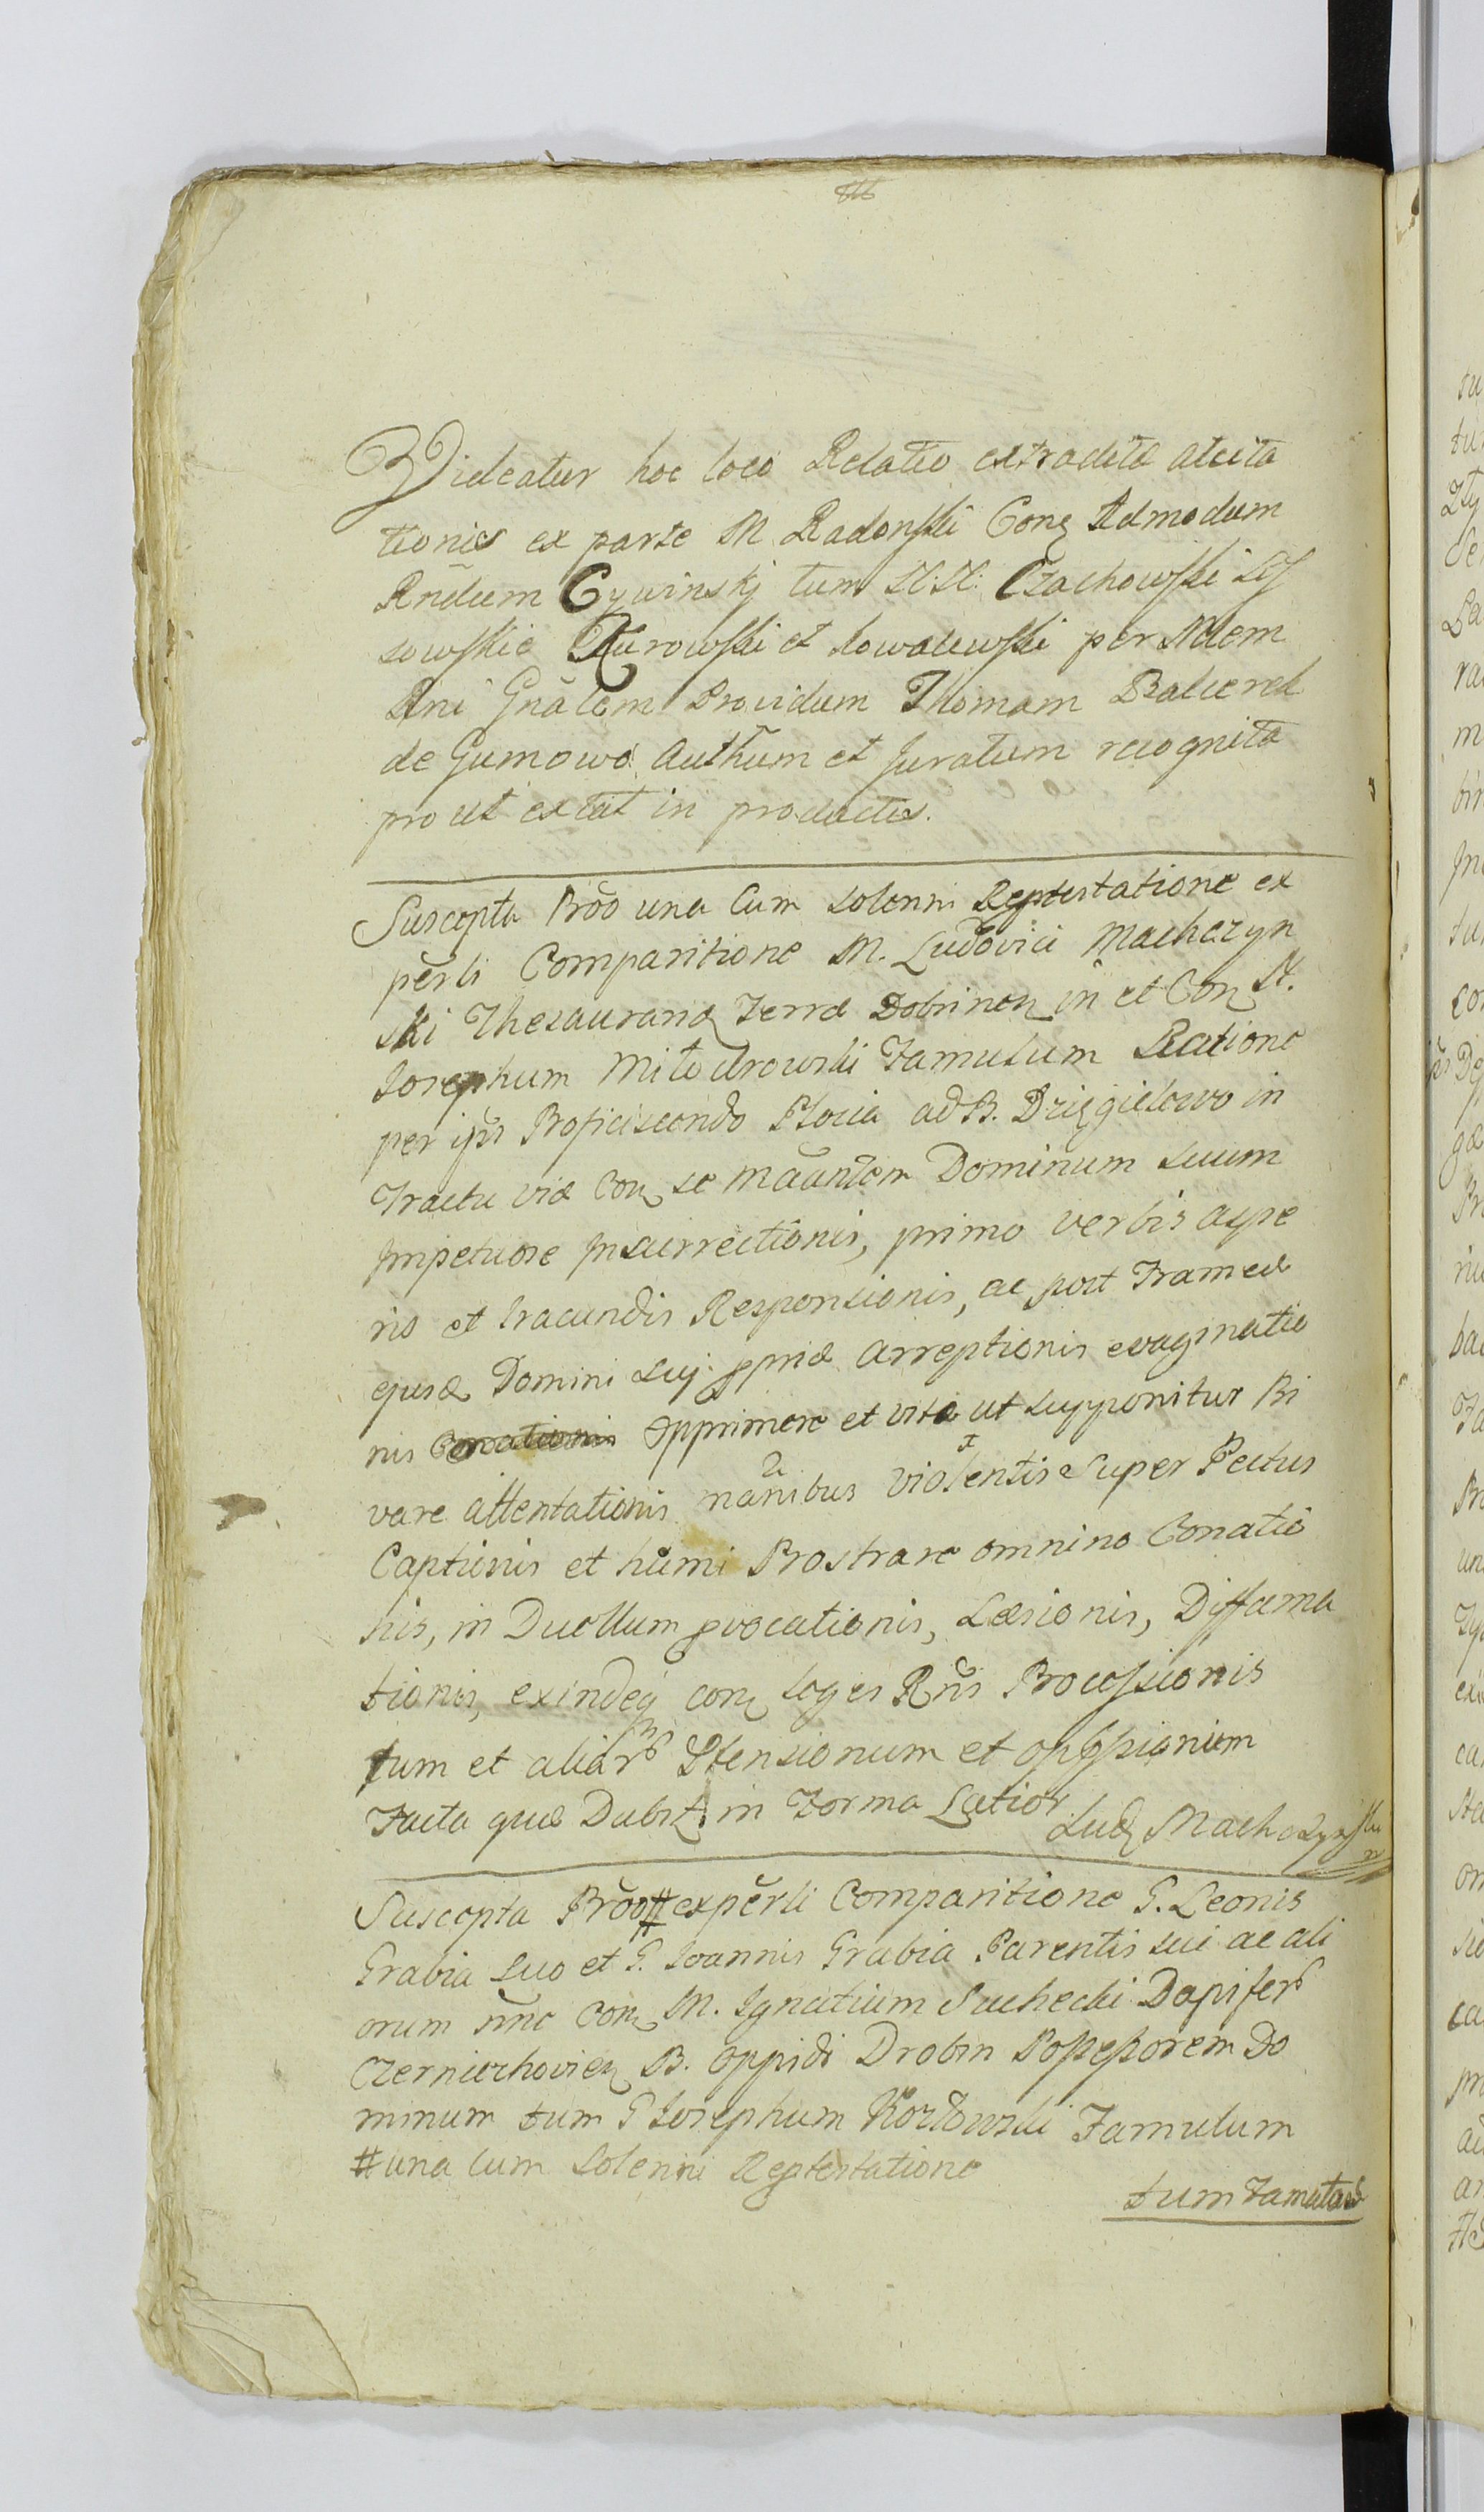 Videatur hoc loco Relatio extradita atcita
tionis ex parte M. Radonski Conq Admodum
Rndum Cywinskj tum N:N: Czachowski Lis
sowskie Kurowski et Kowalewski per Ndem
Rni Gnalem Providum Thomam Balcerek
de Gumowo Authum et Juratum recognita
pro ut extat in productis.
Suscepta Proo una Cum solenni Reptestatione ex
perli Comparitione M. Ludovici Machczyn
ski Thesaurariq Terræ Dobrinen in et Conq N.
Josephum Milodrowski Famulum Ratione
per ips Proficiscendo Plocia ad B. Dzięgielewo in
Tractu viæ Conq se Maantem Dominum suum
Impetuose Insurrectionis, primo verbis aspe
ris et Iracundis Responsionis, ac post Frameæ
ejusd Domini suj ppriæ arreptionis evaginatio
nis Opprimere et vita ut supponitur Pri
vare attentationis manibus violentis Super Pectus
Captionis et humi Prostrare omnino Conatio
nis, in Duellum pvocationis, Læsionis, Diffama
tionis, exindeq conq leges Rni Processionis
tum et aliar Ostensionum et oppssionum
Facta quæ Dabit in Forma Latior
Lud Machczynski
Suscepta Proo # experli Comparitione G. Leonis
Grabia suo et G. Joannis Grabia Parentis sui ac ali
orum nnc Conq M. Ignatium Suchecki Dapifer
Czerniechovien B. oppidi Drobin Possessorem Do
minum tum G Josephum Kozlowski Famulum
# una cum Solenni Reptestatione
tum Famulas